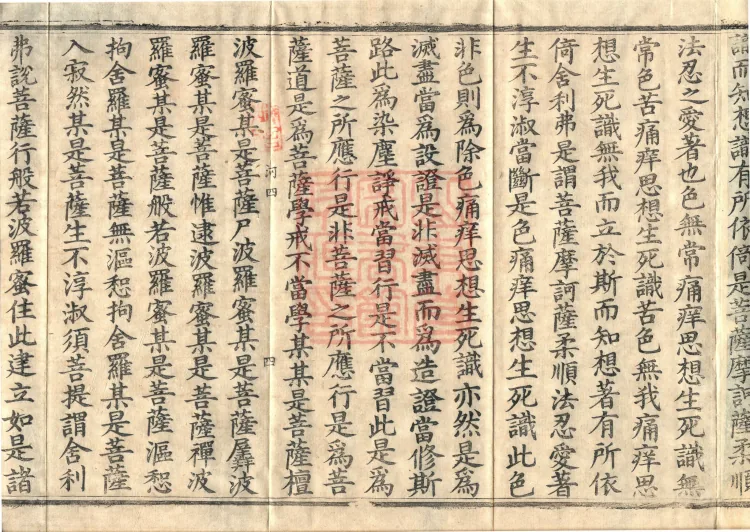 識而知想識有所依倚是菩薩摩訶薩柔順
法忍之愛著也色無常痛痒思想生死識無
常色苦痛痒思想生死識苦色無我痛痒思
想生死識無我而立於斯而知想著有所依
倚舍利弗是謂菩薩摩訶薩柔順法忍愛著
生不淳淑當斷是色痛痒思想生死識此色
非色則為除色痛痒思想生死識亦然是為
滅盡當為設證是非滅盡而為造證當修斯
路此為染塵諍戒當習行是不當習此是為
菩薩之所應行是非菩薩之所應行是為菩
薩道是為菩薩學戒不當學某某是菩薩檀
波羅蜜某是菩薩尸波羅蜜某是菩薩羼波
河四
四
羅蜜某是菩薩惟逮波羅蜜某是菩薩禪波
羅蜜某是菩薩般若波羅蜜某是菩薩漚恕
拘舍羅某是菩薩無漚恕拘舍羅某是菩薩
入寂然某是菩薩生不淳淑須菩提謂舍利
弗說菩薩行般若波羅蜜住此建立如是諸